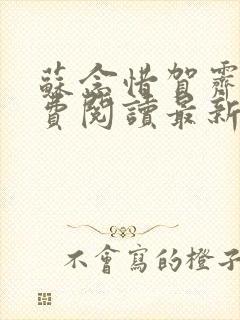 蘇念惜賀霽
費閱讀最新
不會寫的橙子